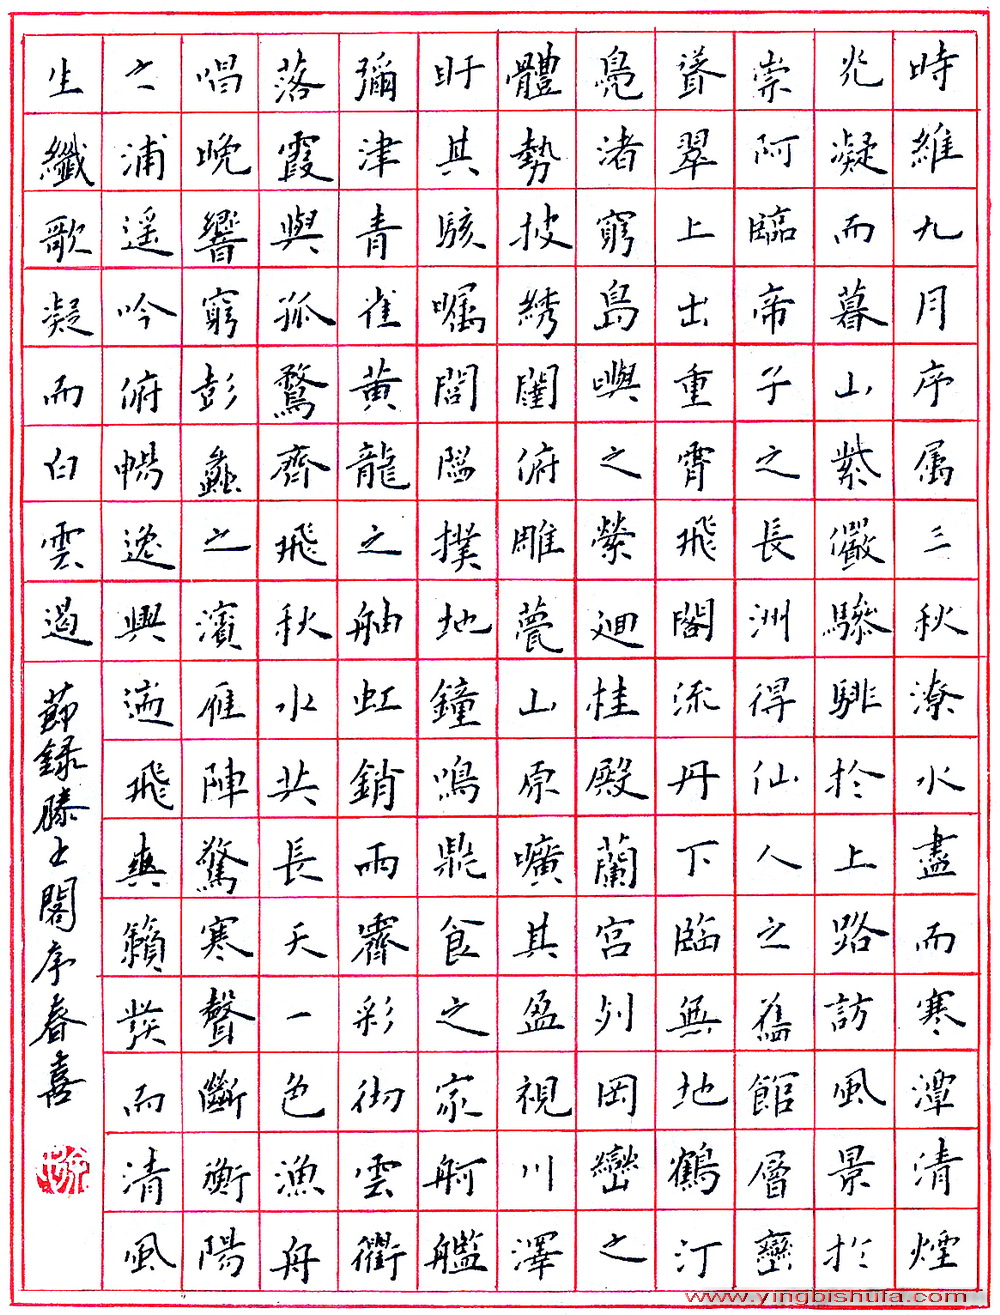 時維九月序属三秋潦水盡而寒潭清煙
光凝而暮山紫儼驂騑於上路訪風景於
崇阿臨帝子之長洲得仙人之舊館層巒
聳翠上出重霄飛閣流丹下臨無地鶴汀
鳧渚窮島嶼之縈廻桂殿蘭宮列岡巒之
體勢披綉闥俯雕甍山原曠其盈視川澤
盱其駭矚閭閻撲地鐘鳴鼎食之家舸艦
彌津青雀黃龍之舳虹銷雨霽彩彻雲衢
落霞與孤鶩齊飛秋水共長天一色漁舟
唱晚響窮彭蠡之濱雁陣驚寒聲斷衡陽
之浦遥吟俯暢逸興遄飛爽籟發而清風
生纖歌凝而白雲遏
節録滕王閣序春喜
www.yingbishufa.com